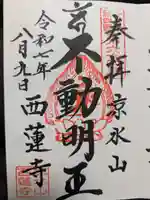 奉拝
京水山
不動明王
令和七年
八月九日
西蓮寺